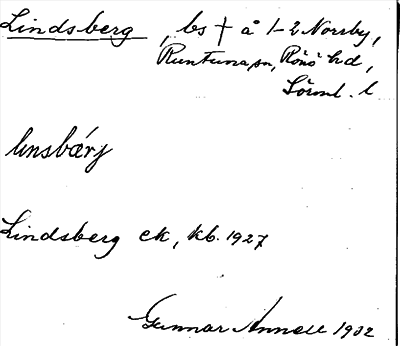 Lindsberg, bs † å 1-2 Norrby,
Runtuna sn, Rönö hd,
Sörml. l.
linsbærj
Lindsberg ek, kb. 1927
Gunnar Annell 1932